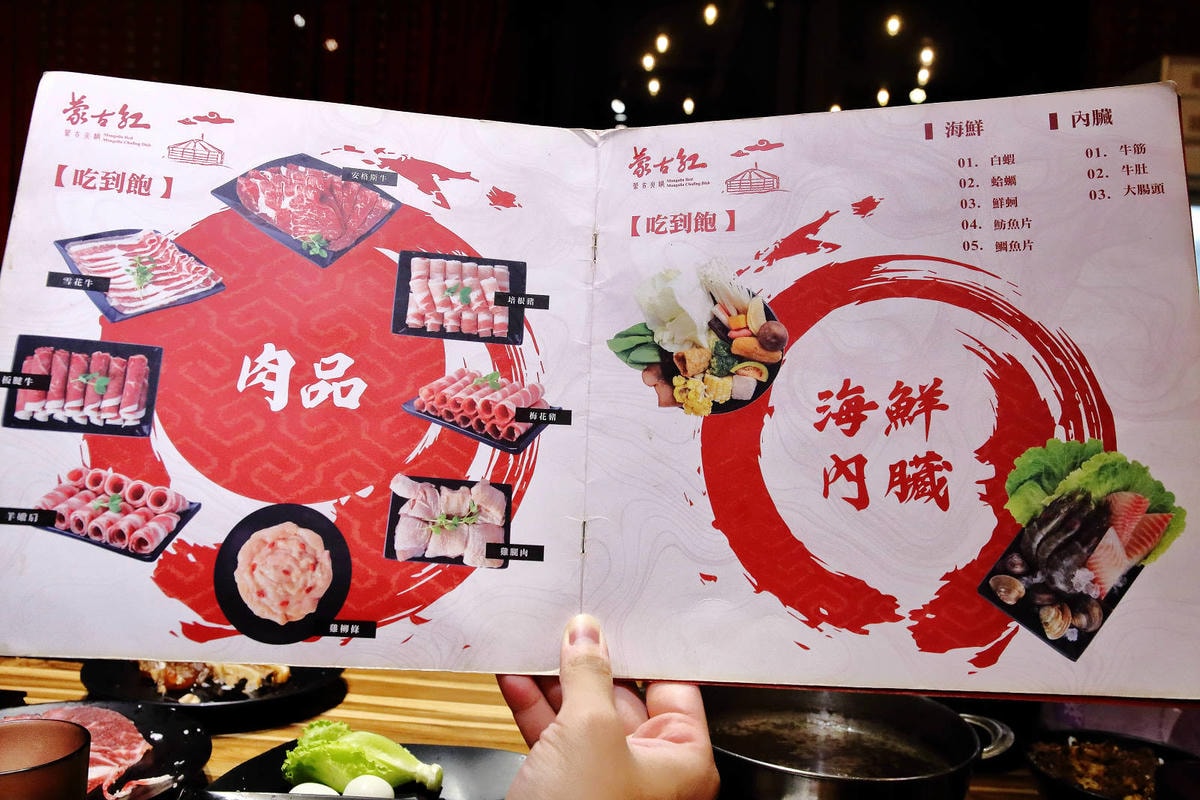 蒙古紅
蒙古火鍋 Mongolia Red
Mongolia Chafing Dish
【吃到飽】
安格斯牛
雪花牛
培根豬
板腱牛
肉品
梅花豬
羊嫩肩
雞腿肉
雞柳條
蒙古紅
蒙古火鍋 Mongolia Red
Mongolia Chafing Dish
【吃到飽】
海鮮
01. 白蝦
02. 蛤蠣
03. 鮮蚵
04. 魴魚片
05. 鯛魚片
內臟
01. 牛筋
02. 牛肚
03. 大腸頭
海鮮
內臟